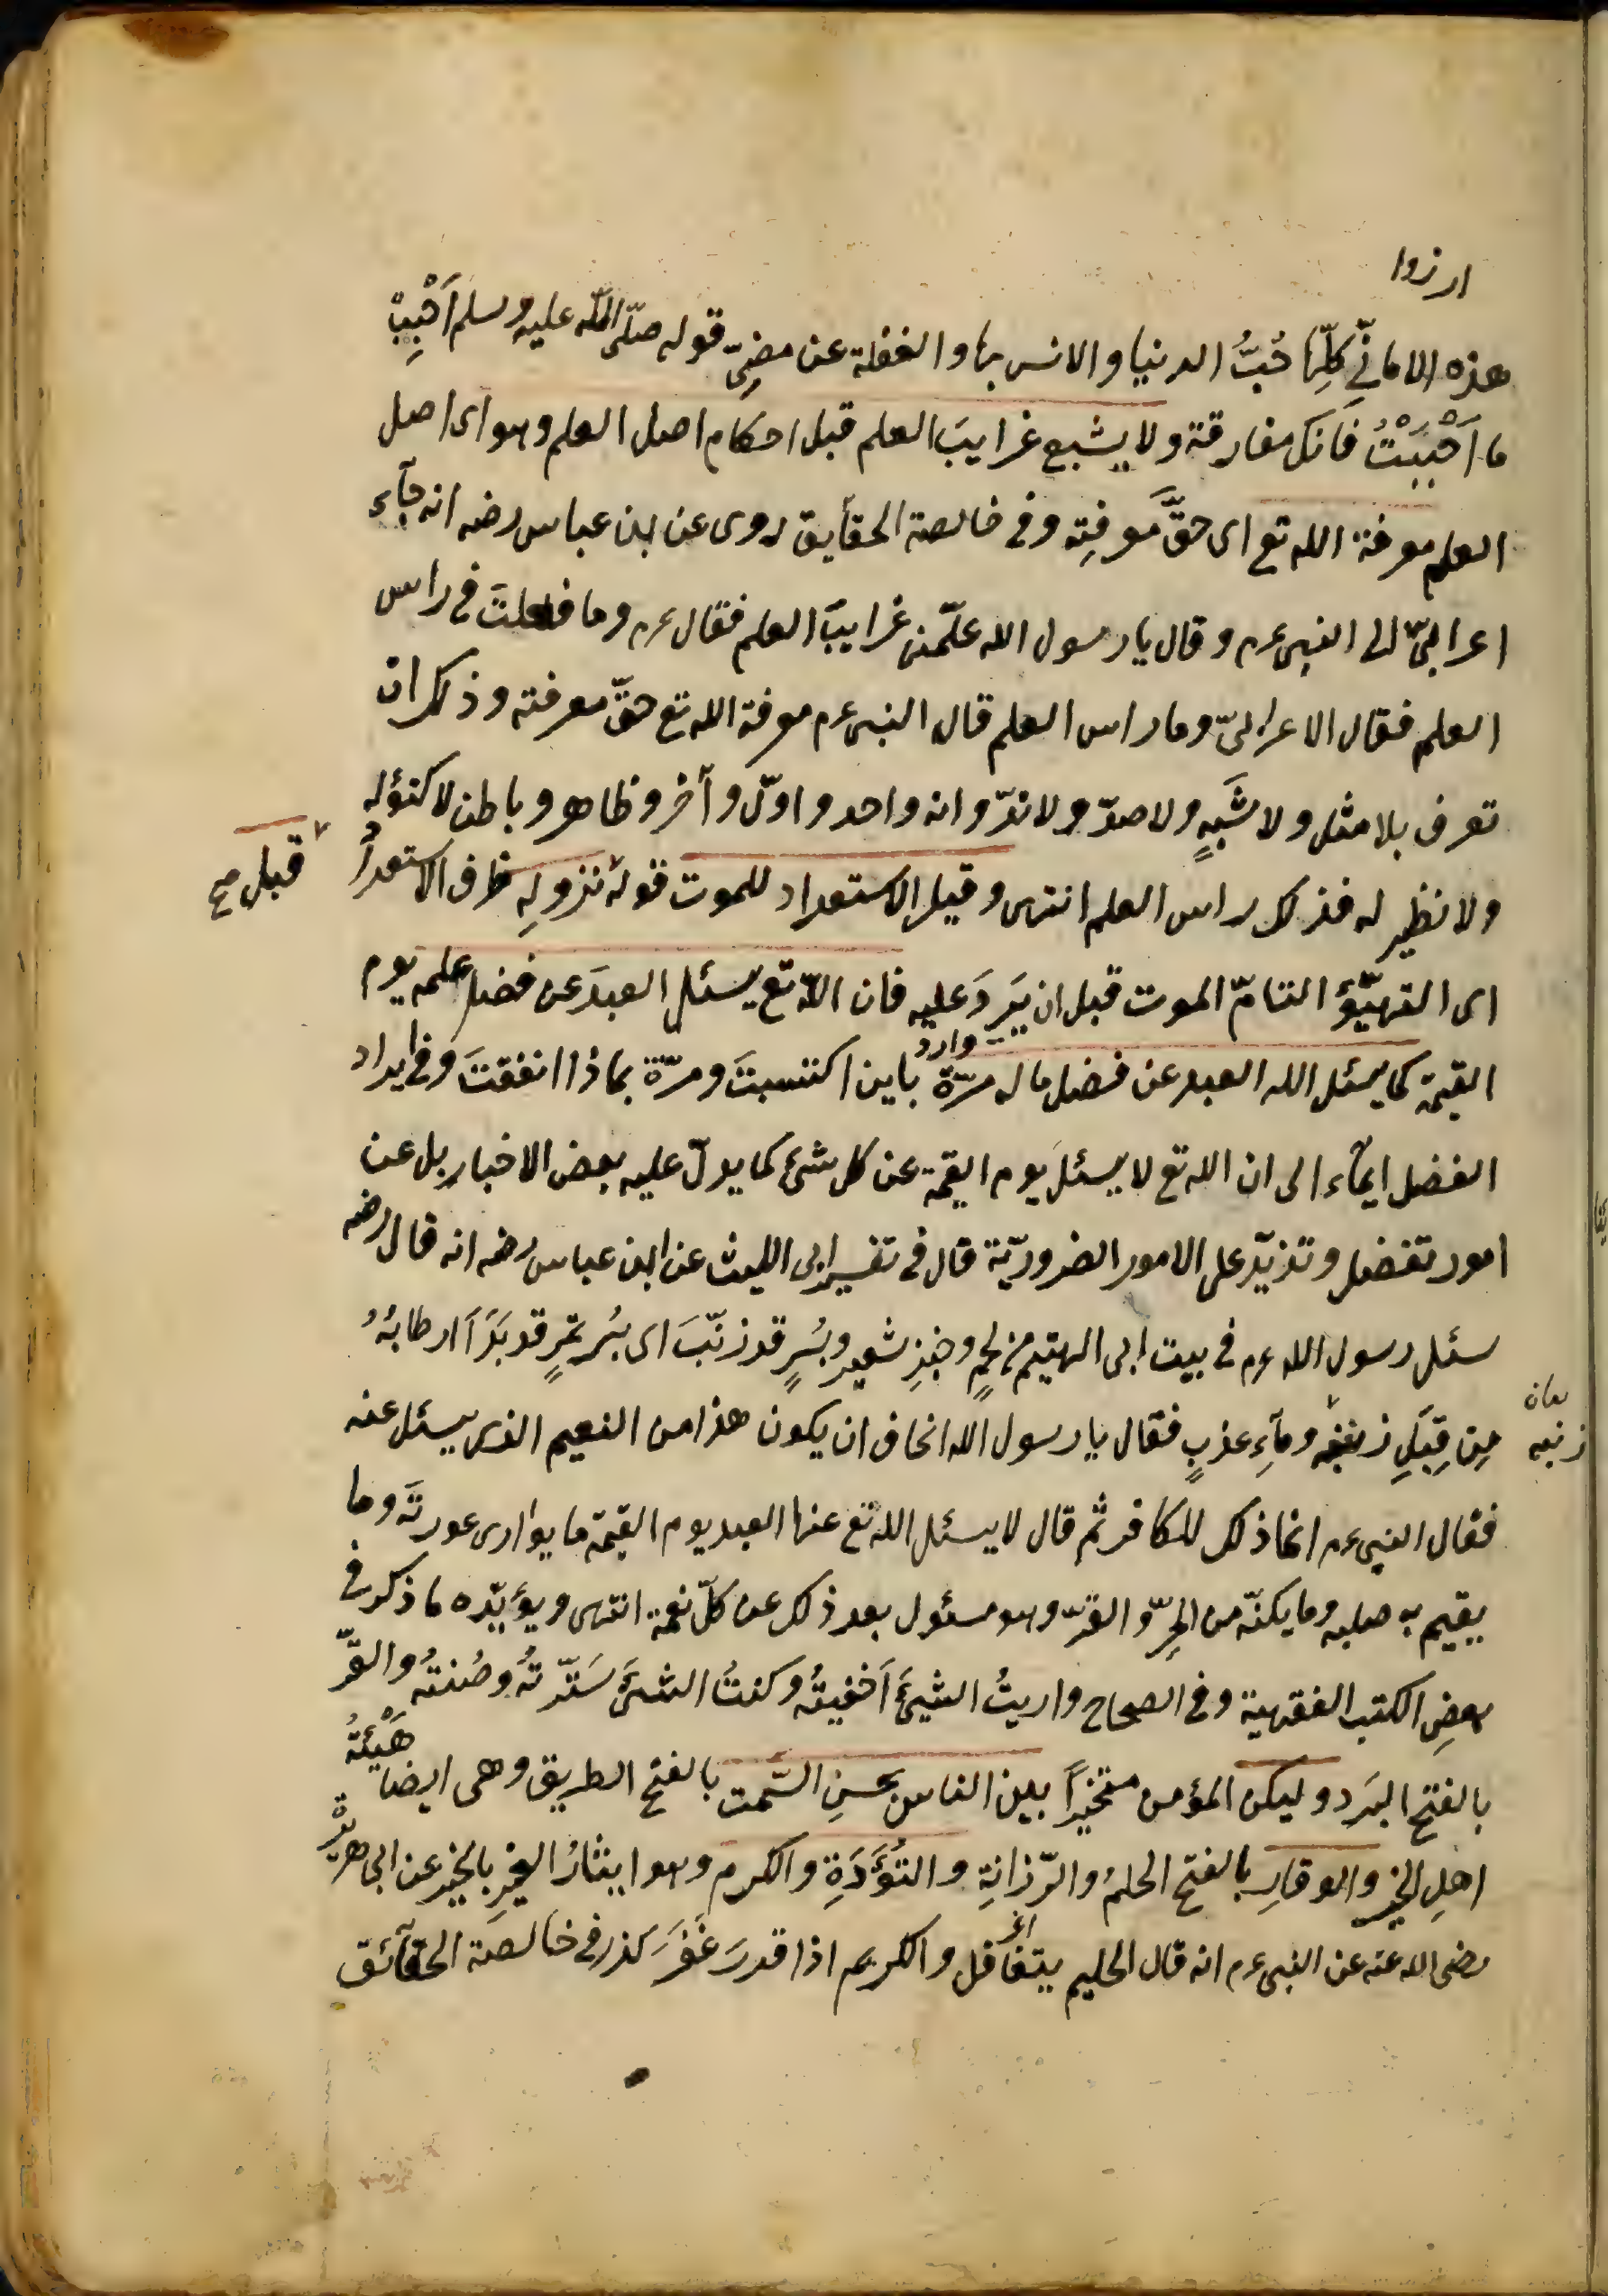 ارزوا
هذه الامانّي كلِّها حُبُّ الدنيا والانس بها والغفلة عن مضيّ قوله صلّى اللّه عليه وسلم اَحْبِبْ
ما اَحْبَبْتَ فَانك مفارقة ولا يشبع غرايبَ العلم قبل احكام اصل العلم وهو اى اصل
العلم معرفة الله تع اى حقَّ معرفتِه وفى خالصة الحقآيق روى عن ابن عباس رضه انه جآء
اعرابىّ الى النبى عم وقال يا رسول الله علّمنى غرايبَ العلم فقال عم وما فعلتَ فى راس
العلم فقال الاعرابىّ وما راس العلم قال النبى عم معرفة الله تع حقّ معرفته وذلك ان
تعرف بلا مثل ولا شَبَهٍ ولا ضدّ ولا ندّ وانه واحد واوّل وآخر وظاهر وباطن لا كفؤ له
ولا نظير له فذلك راس العلم انتهى وقيل الاستعداد للموت قوله نزولِهِ ظرف الاستعداد
قبل صح
اى التهيّؤ التامّ الموت قبل ان يَرِدَ عليه فان اللّه تع يسئل العبدَ عن فضل علمه يوم
وارد
القيمة كما يسئل الله العبد عن فضل ماله مرّة باين اكتسبتَ ومرّة بماذا انفقتَ وفى ايراد
الفضل ايمآء الى ان الله تع لا يسئل يوم القيمة عن كل شئ كما يدلّ عليه بعض الاخبار بل عن
امور تفضل وتزيّد على الامور الضروريّة قال فى تفسير ابى الليث عن ابن عباس رضه انه قال رضه
سئل رسول الله عم فى بيت ابى الهيثم من لحمٍ وخبزِ شعير وبُسرٍ قد زنّبَ اى بُسر تمرٍ قد بَدَا ارطابُهُ
مِن قِبَلِ زنبه ومآءٍ عذبٍ فقال يا رسول الله اتخاف ان يكون هذا من النعيم الذى يسئل عنه
زنبه
فقال النبى عم انما ذلك للكافر ثم قال لا يسئل الله تع عنها العبد يوم القيمة ما يوارى عورتَه وما
يقيم به صلبه وما يكنّه من الحرّ والقرّ وهو مسئول بعد ذلك عن كلّ نعمة انتهى ويؤيّده ما ذكر فى
بعضِ الكتب الفقهية وفى الصحاح واريتُ الشيئَ اَخفيتُه وكننتُ الشئَ سَتَرْتُهُ وصُنتُه والقَرّ
بالفتح البَرد وليكن المؤمن متخيّراً بين الناس بحسنِ السّمت بالفتح الطريق وهى ايضا هَيْئَةُ
اهلِ الخير والوقارِ بالفتح الحلمُ والرّزانةِ والتُؤَدَةِ والكرم وهو ايثارُ الغيرِ بالخير عن ابى هريرة
رضى الله عنه عن النبى عم انه قال الحليم يتغافل والكريم اذا قدرَ غَفَرَ كذا فى خالصة الحقآئق